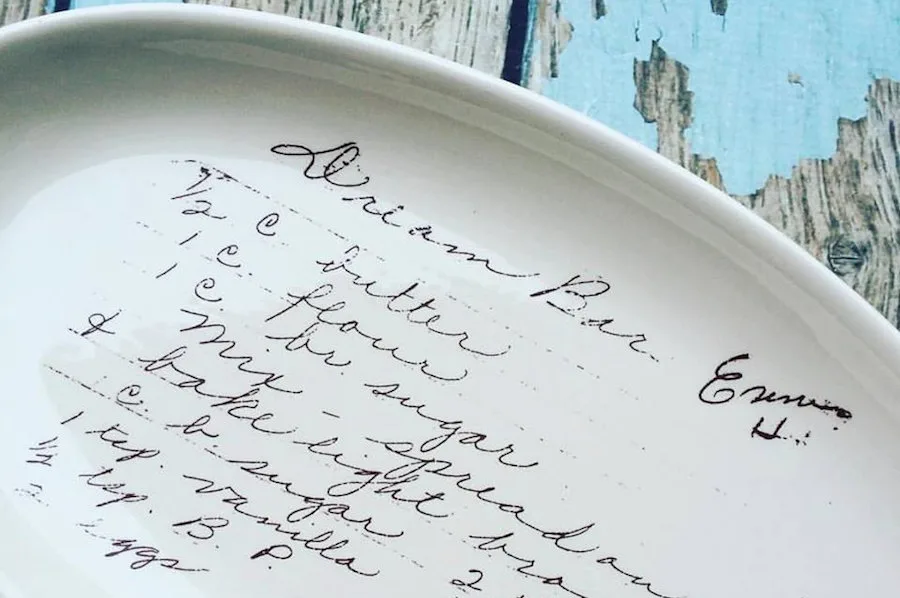 Dream Bar.
Emma H.
1/2 c butter
1 c. flour
1 c br. sugar
Mix - spread
& bake light
c. b sugar
1 tsp. vanilla 2
1/2 tsp. B. P.
eggs